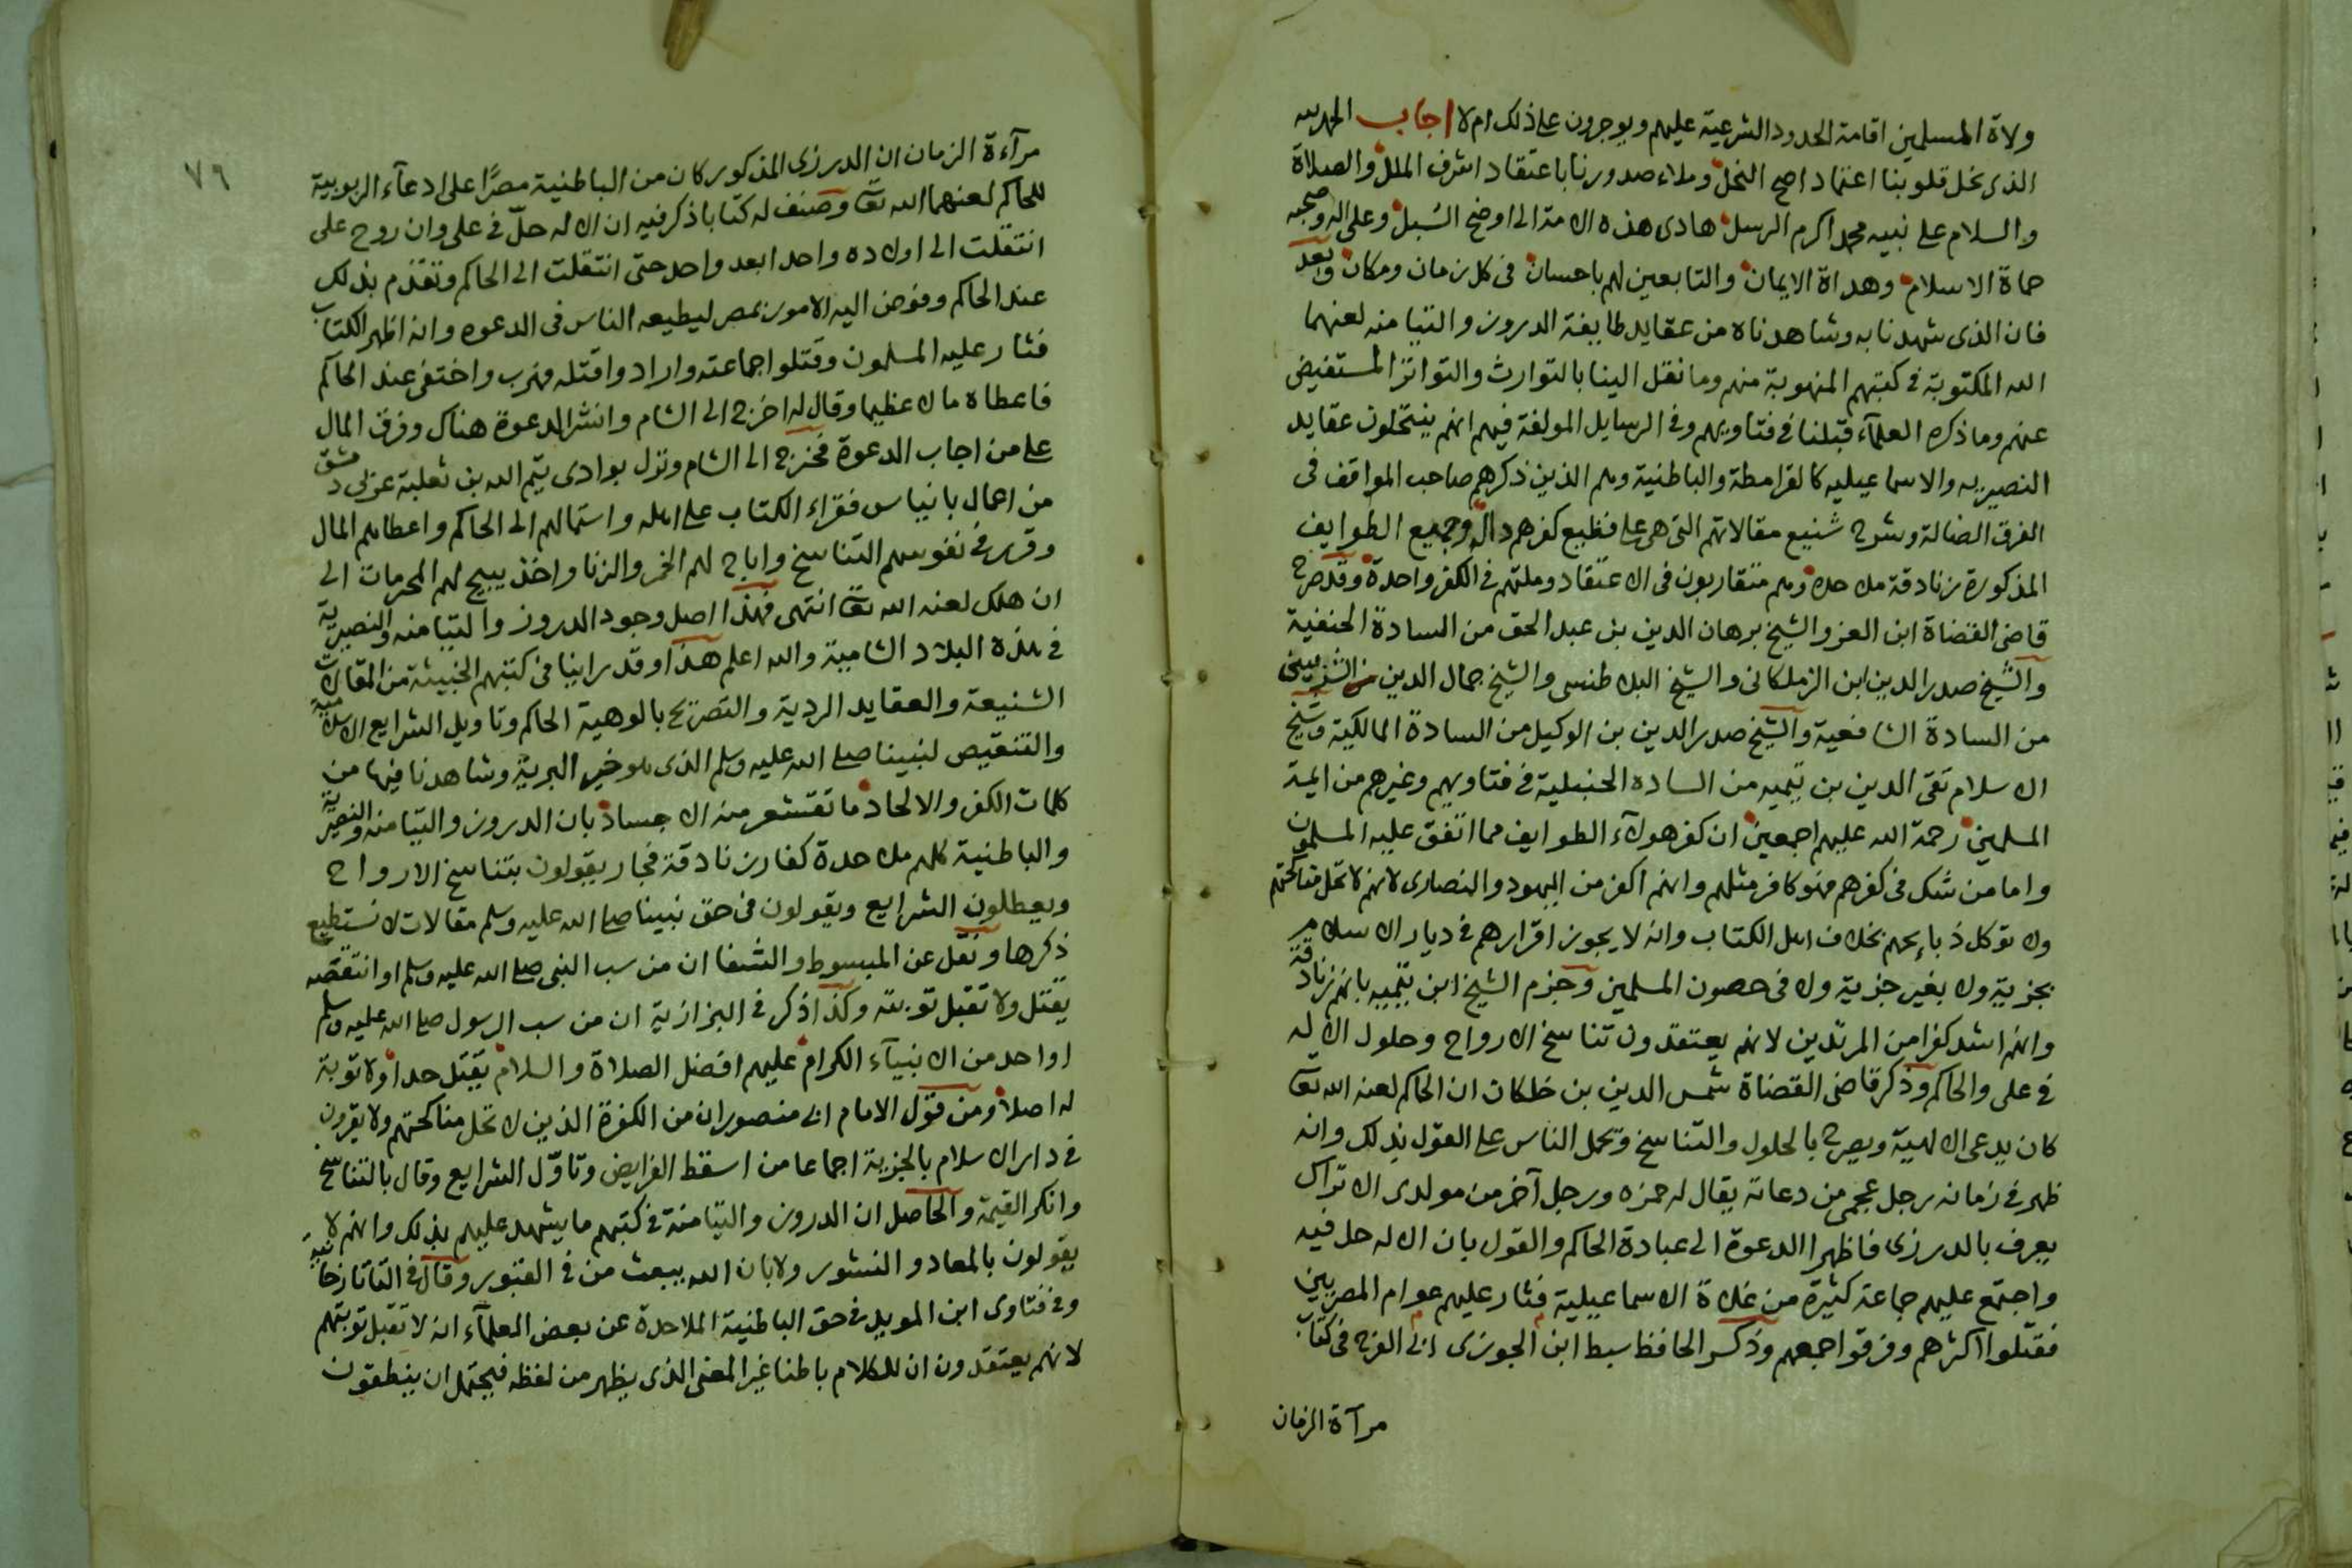 ولاة المسلمين اقامة الحدود الشرعية عليهم ويوجرون على ذلك ام لا اجاب الحمد لله
الذى نحل قلوبنا اعتماد اصح النحل وملاء صدورنا باعتقاد اشرف الملل والصلاة
والسلام على نبيه محمد اكرم الرسل هادى هذه الامة الى اوضح السبل وعلى اله وصحبه
حماة الاسلام وهداة الايمان والتابعين لهم باحسان فى كل زمان ومكان وبعد
فان الذى شهدنا به وشاهدناه من عقايد طايفة الدروز والتيامنه لعنهما
الله المكتوبة فى كتبهم المنهوبة منهم وما نقل الينا بالتوارث والتواتر المستفيض
عنهم وما ذكره العلمآء قبلنا فى فتاويهم وفى الرسايل المولفة فيهم انهم ينتحلون عقايد
النصيريه والاسماعيليه كالقرامطة والباطنية وهم الذين ذكرهم صاحب المواقف فى
الفرق الضالة وشرح شنيع مقالاتهم التى هى على فظيع كفرهم دالة وجميع الطوايف
المذكورة زنادقة ملاحدة وهم متقاربون فى الاعتقاد وملتهم فى الكفر واحدة وقد صرح
قاضى القضاة ابن العز والشيخ برهان الدين بن عبد الحق من السادة الحنفية
والشيخ صدر الدين ابن الزملكانى والشيخ البلاطنسى والشيخ جمال الدين الشربينى
من السادة الشافعية والشيخ صدر الدين بن الوكيل من السادة المالكية وشيخ
الاسلام تقى الدين بن تيميه من الساده الحنبلية فى فتاويهم وغيرهم من ايمة
المسلمين رحمة الله عليهم اجمعين ان كفر هولآء الطوايف مما اتفق عليه المسلمون
واما من شك فى كفرهم فهو كافر مثلهم وانهم اكفر من اليهود والنصارى لانهم لا تحل مناكحتهم
ولا توكل ذبايحهم بخلاف اهل الكتاب وانه لا يجوز اقرارهم فى ديار الاسلام
بجزية ولا بغير جزية ولا فى حصون المسلمين وجزم الشيخ ابن تيميه بانهم زنادقة
وانهم اشد كفرا من المرتدين لانهم يعتقدون تناسخ الارواح وحلول الاله
فى على والحاكم وذكر قاضى القضاة شمس الدين بن خلكان ان الحاكم لعنه الله تعا
كان يدعى الالهية ويصرح بالحلول والتناسخ ويحمل الناس على القول بذلك وانه
ظهر فى زمانه رجل عجمى من دعاته يقال له حمزه ورجل آخر من مولدى الاتراك
يعرف بالدرزى فاظهرا الدعوة الى عبادة الحاكم والقول بان الاله حل فيه
واجتمع عليهم جماعة كثيرة من غلاة الاسماعيلية فثار عليهم عوام المصريين
فقتلوا اكثرهم وفرقوا جمعهم وذكر الحافظ سبط ابن الجوزى ابى الفرج فى كتاب
مرآة الزمان
٧٦
مرآءة الزمان ان الدرزى المذكور كان من الباطنية مصرًا على ادعآء الربوبية
للحاكم لعنهما الله تعا وصنف له كتابا ذكر فيه ان الاله حلّ فى على وان روح على
انتقلت الى اولاده واحدا بعد واحد حتى انتقلت الى الحاكم وتقدم بذلك
عند الحاكم وفوض اليه الامور بمصر ليطيعه الناس فى الدعوه وانه اظهر الكتاب
فثار عليه المسلمون وقتلوا جماعته واراد واقتله فهرب واختفى عند الحاكم
فاعطاه مالا عظيما وقال له اخرج الى الشام وانشر الدعوة هناك وفرق المال
على من اجاب الدعوة فخرج الى الشام ونزل بوادى تيم الله بن ثعلبة غربى دمشق
من اعمال بانياس فقراء الكتاب على اهله واستمالهم الى الحاكم واعطاهم المال
وقرر فى نفوسهم التناسخ واباح لهم الخمر والزنا واخذ يبيح لهم المحرمات الى
ان هلك لعنه الله تعا انتهى فهذا اصل وجود الدروز والتيامنه والنصيرية
فى هذه البلاد الشامية والله اعلم هذا وقد راينا فى كتبهم الخبيثة من المقالات
الشنيعة والعقايد الردية والتصريح بالوهية الحاكم وتاويل الشرايع الاسلامية
والتنقيص لنبينا صلى الله عليه وسلم الذى هو خير البرية وشاهدنا فيها من
كلمات الكفر والالحاد ما تقشعر منه الاجساد بان الدروز والتيامنه والنصيرية
والباطنية كلهم ملاحدة كفار زنادقة فجار يقولون بتناسخ الارواح
ويعطلون الشرايع ويقولون فى حق نبينا صلى الله عليه وسلم مقالات لا نستطيع
ذكرها ونقل عن المبسوط والشفا ان من سب النبى صلى الله عليه وسلم او انتقصه
يقتل ولا تقبل توبته وكذا ذكر فى البزازية ان من سب الرسول صلى الله عليه وسلم
او احد من الانبيآء الكرام عليهم افضل الصلاة والسلام يقتل حدا ولا توبة
له اصلا ومن قول الامام ابى منصور ان من الكفرة الذين لا تحل مناكحتهم ولا يقرون
فى دار الاسلام بالجزية اجماعا من اسقط الفرايض وتاوّل الشرايع وقال بالتناسخ
وانكر القيمة والحاصل ان الدروز والتيامنة فى كتبهم ما يشهد عليهم بذلك وانهم لا
يقولون بالمعاد والنشور ولا بان الله يبعث من فى القبور وقال فى التاتارخانية
وفى فتاوى ابن المويد فى حق الباطنية الملاحدة عن بعض العلمآء انه لا تقبل توبتهم
لانهم يعتقدون ان للكلام باطنا غير المعنى الذى يظهر من لفظه فيحتمل ان ينطقون